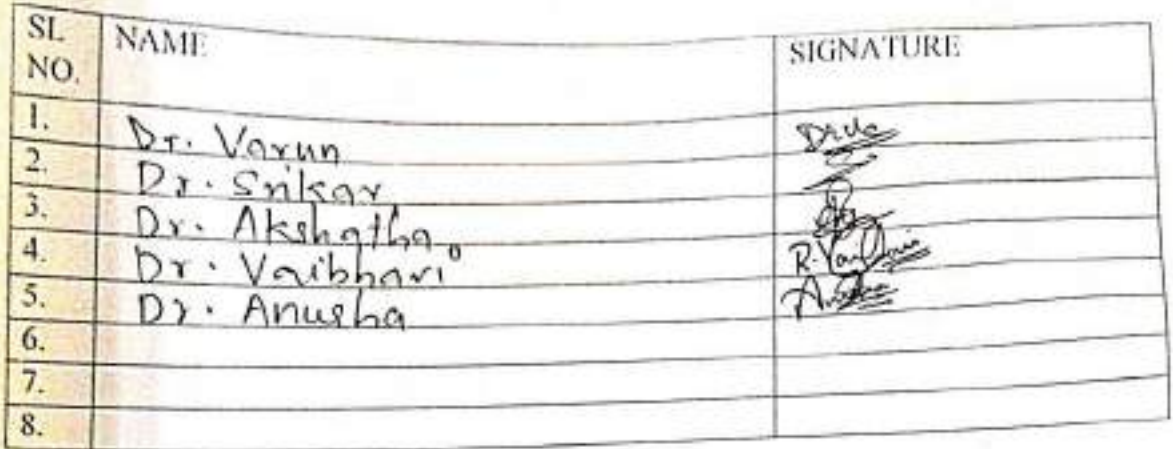 SL NO. NAME SIGNATURE
1. Dr. Varun
2. Dr. Srikar
3. Dr. Akshatha
4. Dr. Vaibhavi
5. Dr. Anusha
6.
7.
8.